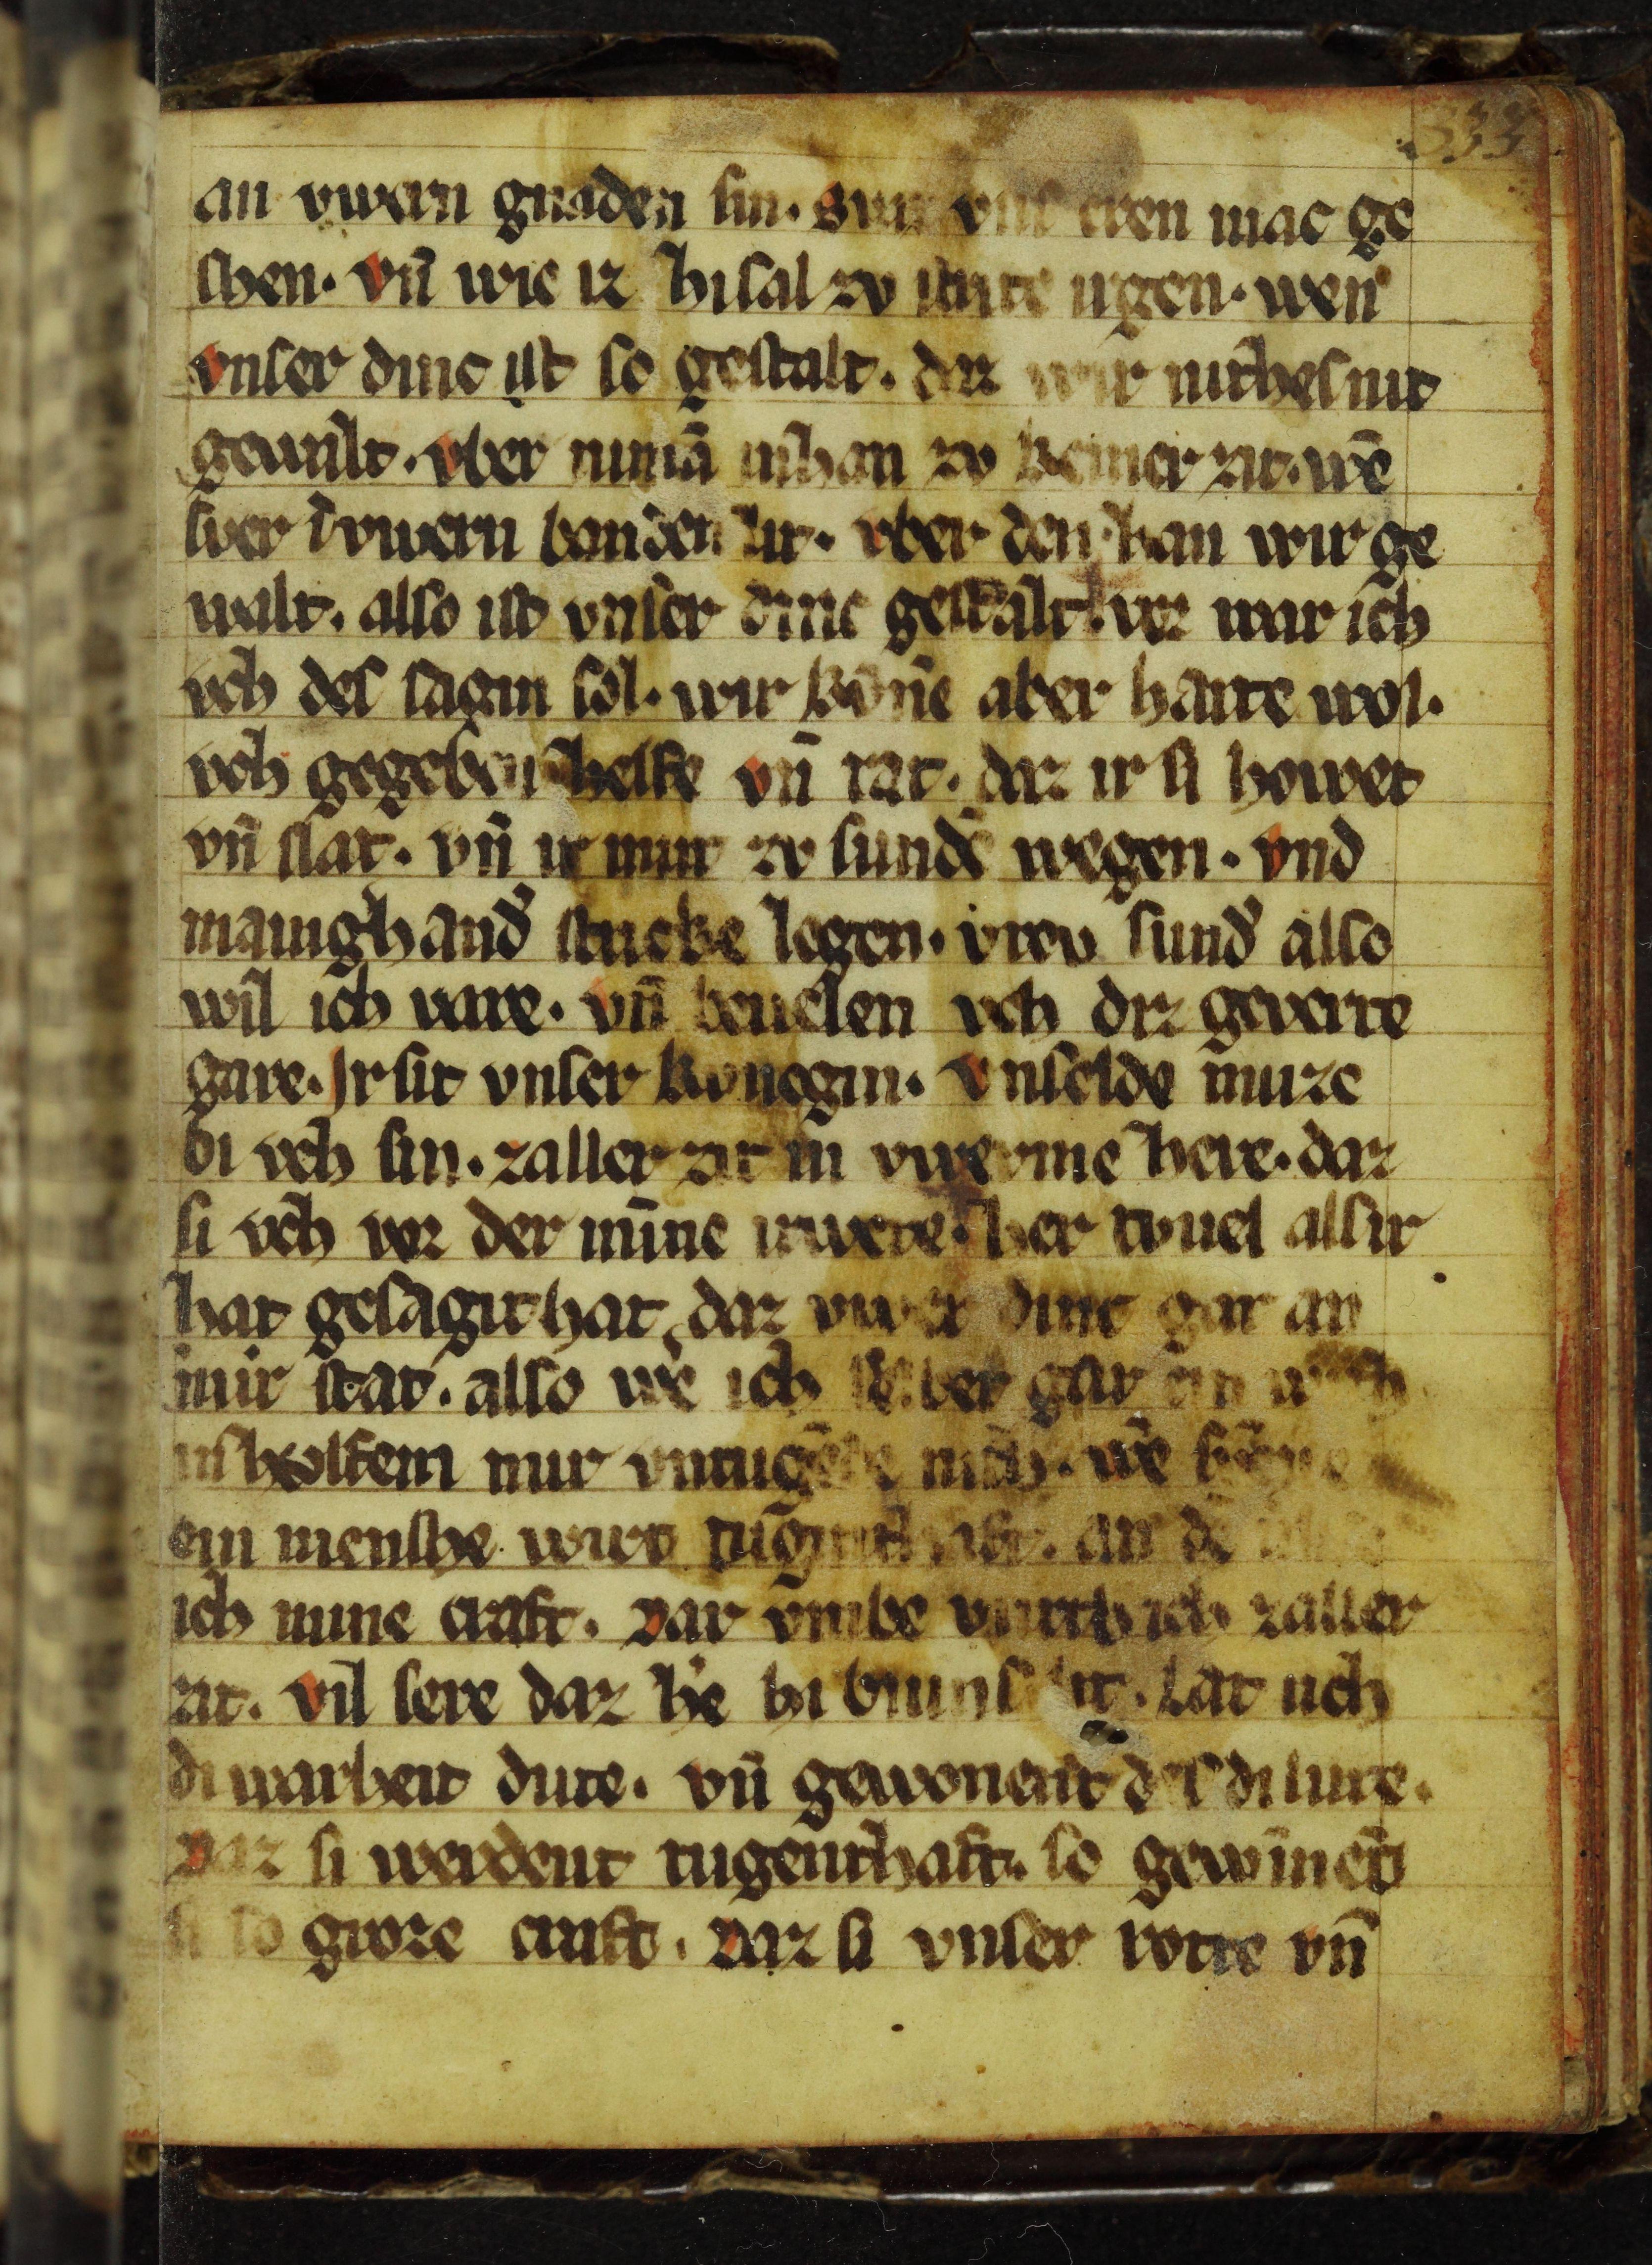 333
an vwern gnaden sin. swz vns eren mac ge
shen. vñ wie iz hi sal zv ligen. wen
vnser dinc ist so gestalt. daz wir nithes nit
gewalt. vber nimā inhan zv keiner zit. wē
swer vwern banden lit. vber den han wir ge
walt. also ist vnser dinc gestalt. vor war ich
vch des sagin sol. wir kōnē aber harte wol.
vch gegeben helfe vñ rat. daz ir si howet
vñ slat. vñ ir mut zv sundē wegen. vnd
manigh and' stricke legen. vrev sund' also
wil ich vare. vñ beuelen vch diz geverte
gare. Ir sit vnser konegin. vnselde muze
bi vch sin. zaller zit in vwerme here. daz
si vch vor der minne irwere. her tvuel als ir
hat gesagit hat, daz vwer dinc gar an
mir stat. also wē ich selber gar an
in holfem mir vntugēde nith. wē
ein menshe wirt an dē
ich mine craft. Dar vmbe vurth ich zaller
zit. vil sere daz he bi lit. Lat uch
di warheit dute. vñ gewonent des di lute.
Daz si werdent tugenthaft. so gewinēt
si so groze craft. Daz si vnser rotte vñ